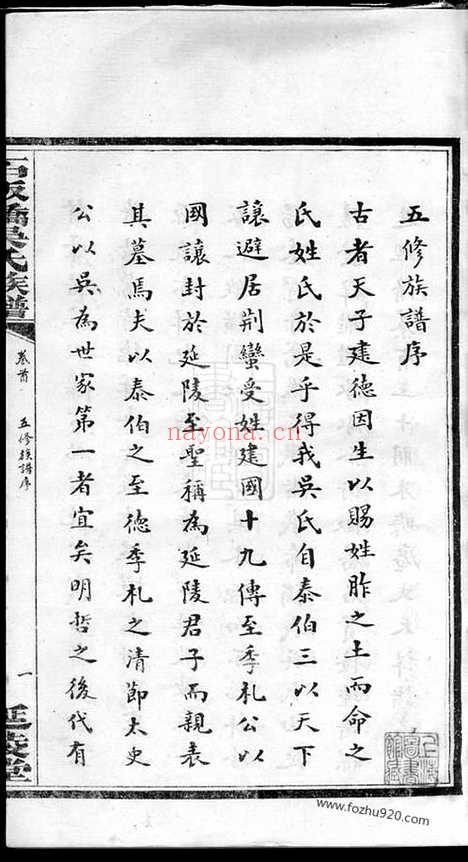 五修族譜序
古者天子建德因生以賜姓胙之土而命之
氏姓氏於是乎得我吳氏自泰伯三以天下
讓避居荆蠻受姓建國十九傳至季札公以
國讓封於延陵至聖稱為延陵君子而親表
其墓焉夫以泰伯之至德季札之清節太史
公以吳為世家第一者宜矣明哲之後代有
石板橋吳氏族譜
卷首
五修族譜序
一
延陵堂
nayona.cn
www.fozhu920.com